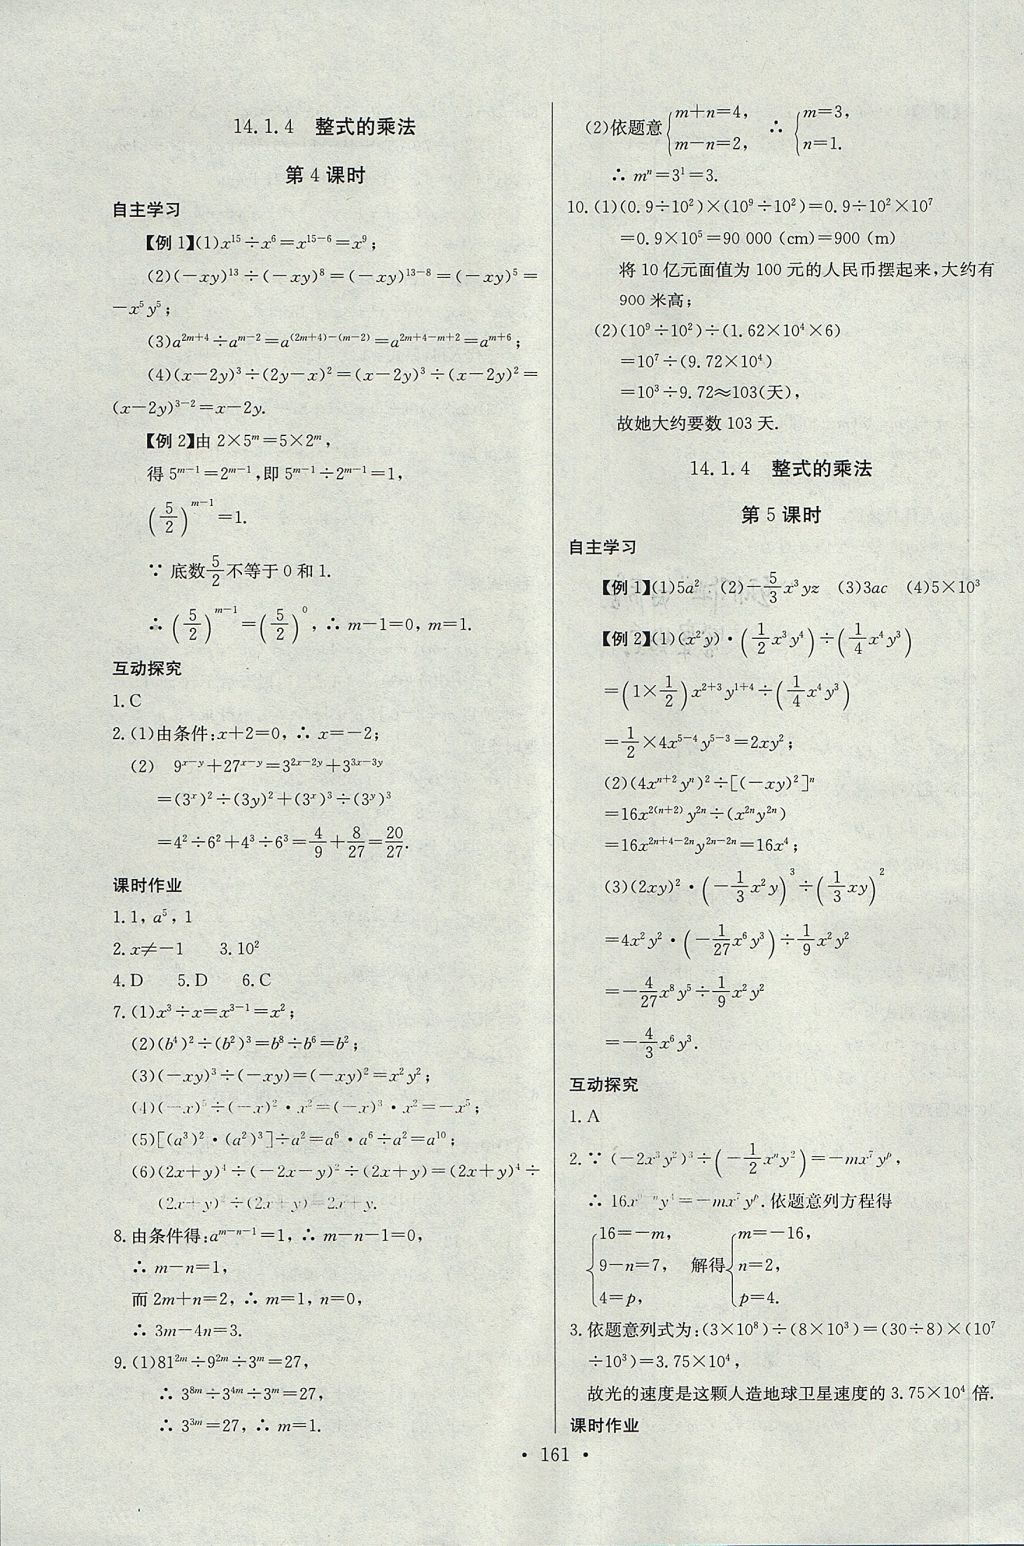 14.1.4 整式的乘法
第4课时
自主学习
【例1】(1)x¹⁵÷x⁶=x¹⁵⁻⁶=x⁹;
(2)(-xy)¹³÷(-xy)⁸=(-xy)¹³⁻⁸=(-xy)⁵=
-x⁵y⁵;
(3)a^{2m+4}÷a^{m-2}=a^{(2m+4)-(m-2)}=a^{2m+4-m+2}=a^{m+6};
(4)(x-2y)³÷(2y-x)²=(x-2y)³÷(x-2y)²=
(x-2y)³⁻²=x-2y.
【例2】由2×5^{m}=5×2^{m},
得5^{m-1}=2^{m-1},即5^{m-1}÷2^{m-1}=1,
(5/2)^{m-1}=1.
∵ 底数5/2不等于0和1.
∴ (5/2)^{m-1}=(5/2)^{0},∴ m-1=0,m=1.
互动探究
1.C
2.(1)由条件:x+2=0,∴ x=-2;
(2) 9^{x-y}+27^{x-y}=3^{2x-2y}+3^{3x-3y}
=(3^{x})²÷(3y)²+(3^{x})³÷(3^{y})³
=4²÷6²+4³÷6³=4/9+8/27=20/27.
课时作业
1.1,a⁵,1
2.x≠-1 3.10²
4.D 5.D 6.C
7.(1)x³÷x=x³⁻¹=x²;
(2)(b⁴)²÷(b²)³=b⁸÷b⁶=b²;
(3)(-xy)³÷(-xy)=(-xy)²=x²y²;
(4)(-x)⁵÷(-x)²·x²=(-x)³·x²=-x⁵;
(5)[(a³)²·(a²)³]÷a²=a⁶·a⁶÷a²=a¹⁰;
(6)(2x+y)⁴÷(-2x-y)²÷(2x+y)=(2x+y)⁴÷
(2x+y)²÷(2x+y)=2x+y.
8.由条件得:a^{m-n-1}=1,∴ m-n-1=0,
∴ m-n=1,
而2m+n=2,∴ m=1,n=0,
∴ 3m-4n=3.
9.(1)81^{2m}÷9^{2m}÷3^{m}=27,
∴ 3^{8m}÷3^{4m}÷3^{m}=27,
∴ 3^{3m}=27,∴ m=1.
(2)依题意{m+n=4, m-n=2, ∴ {m=3, n=1.
∴ m^{n}=3¹=3.
10.(1)(0.9÷10²)×(10⁹÷10²)=0.9÷10²×10⁷
=0.9×10⁵=90 000 (cm)=900 (m)
将10亿元面值为100元的人民币摆起来,大约有
900米高;
(2)(10⁹÷10²)÷(1.62×10⁴×6)
=10⁷÷(9.72×10⁴)
=10³÷9.72≈103(天),
故她大约要数103天.
14.1.4 整式的乘法
第5课时
自主学习
【例1】(1)5a² (2)-5/3x³yz (3)3ac (4)5×10³
【例2】(1)(x²y)·(1/2x³y⁴)÷(1/4x⁴y³)
=(1×1/2)x²⁺³y¹⁺⁴÷(1/4x⁴y³)
=1/2×4x⁵⁻⁴y⁵⁻³=2xy²;
(2)(4x^{n+2}y^{n})²÷[(-xy)²]^{n}
=16x^{2(n+2)}y^{2n}÷(x^{2n}y^{2n})
=16x^{2n+4-2n}y^{2n-2n}=16x⁴;
(3)(2xy)²·(-1/3x²y)³÷(1/3xy)²
=4x²y²·(-1/27x⁶y³)÷1/9x²y²
=-4/27x⁸y⁵÷1/9x²y²
=-4/3x⁶y³.
互动探究
1.A
2.∵ (-2x³y²)³÷(-1/2x^{n}y²)=-mx⁷y^{p},
∴ 16x^{9-n}y⁴=-mx⁷y^{p}.依题意列方程得
{16=-m, 9-n=7, 4=p, 解得{m=-16, n=2, p=4.
3.依题意列式为:(3×10⁸)÷(8×10³)=(30÷8)×(10⁷
÷10³)=3.75×10⁴,
故光的速度是这颗人造地球卫星速度的3.75×10⁴倍.
课时作业
· 161 ·